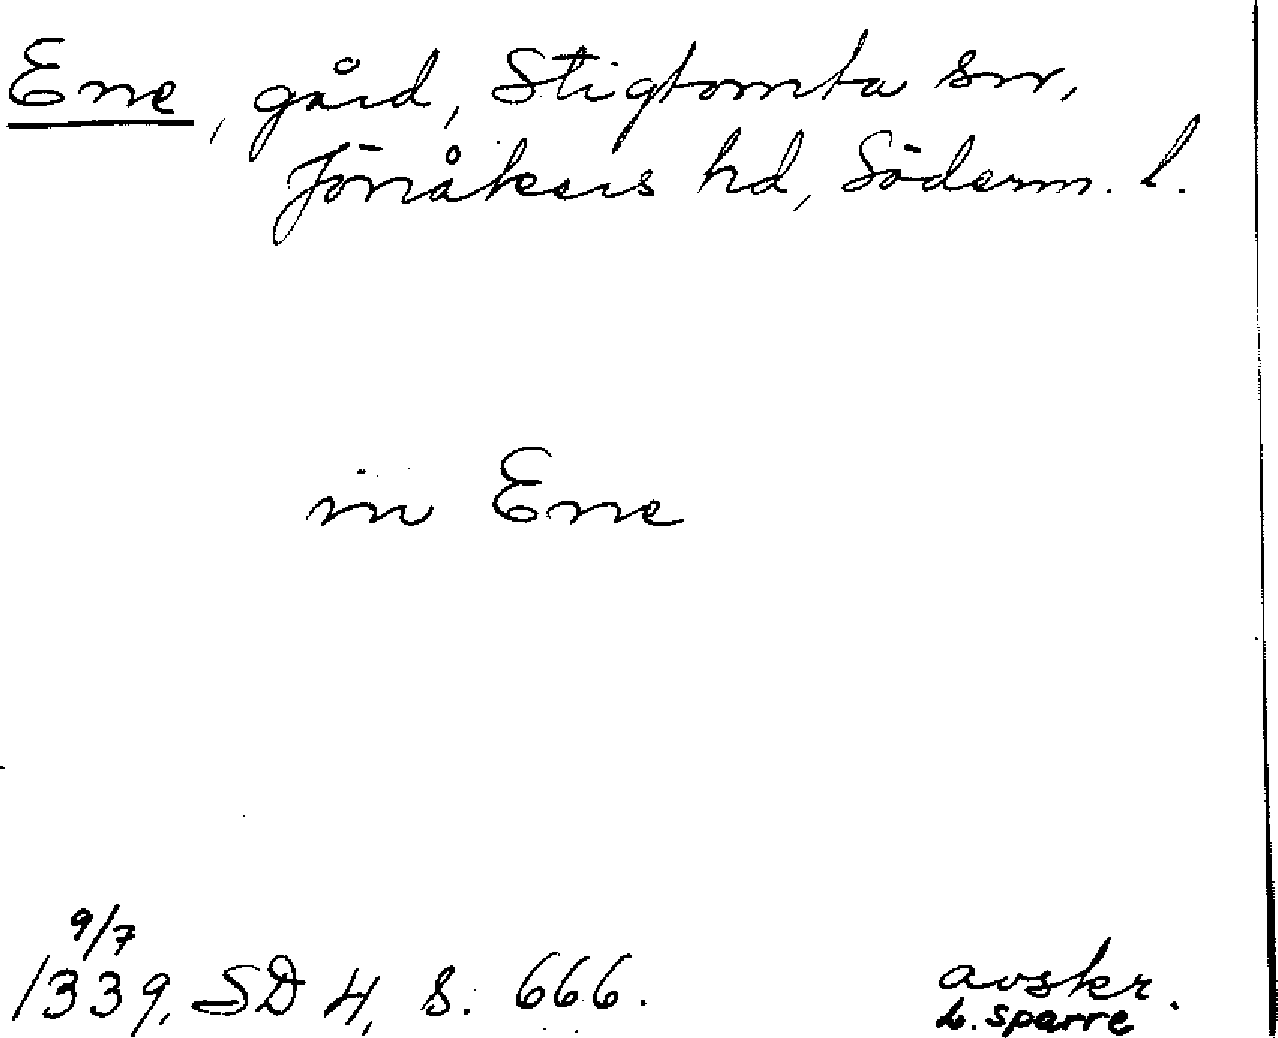 Ene, gård, Stigtomta sn,
Jönåkers hd, Söderm. l.
in Ene
9/7
1339, SD 4, s. 666.
avskr.
L. Sparre